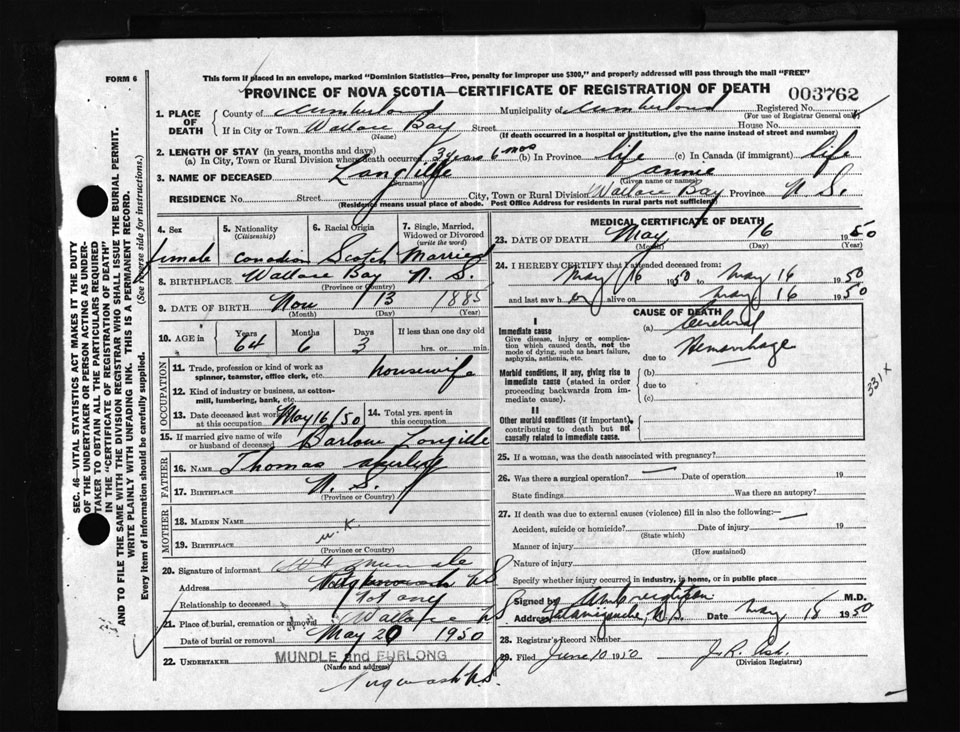 FORM 6
This form if placed in an envelope, marked "Dominion Statistics—Free, penalty for improper use $300," and properly addressed will pass through the mail "FREE"
PROVINCE OF NOVA SCOTIA—CERTIFICATE OF REGISTRATION OF DEATH 003762
1. PLACE OF DEATH
County of Cumberland Municipality of Cumberland Registered No.
(For use of Registrar General only)
If in City or Town Wallace Bay Street House No.
(Name) (If death occurred in a hospital or institution, give the name instead of street and number)
2. LENGTH OF STAY (in years, months and days)
(a) In City, Town or Rural Division where death occurred 3 years 6 mos (b) In Province life (c) In Canada (if immigrant) life
3. NAME OF DECEASED Langille Fannie
(Surname) (Given name or names)
RESIDENCE No. Street City, Town or Rural Division Wallace Bay Province N. S.
(Residence means usual place of abode. Post Office Address for residents in rural parts not sufficient)
4. Sex 5. Nationality (Citizenship) 6. Racial Origin 7. Single, Married, Widowed or Divorced (write the word)
female canadian Scotch Married
8. BIRTHPLACE Wallace Bay N. S.
(Province or Country)
9. DATE OF BIRTH Nov 13 1885
(Month) (Day) (Year)
10. AGE in Years Months Days If less than one day old
64 6 3 hrs. or min.
OCCUPATION
11. Trade, profession or kind of work as spinner, teamster, office clerk, etc. housewife
12. Kind of industry or business, as cotton-mill, lumbering, bank, etc.
13. Date deceased last worked at this occupation May 16/50 14. Total yrs. spent in this occupation
15. If married give name of wife or husband of deceased Barlow Langille
FATHER
16. NAME Thomas
17. BIRTHPLACE N. S.
(Province or Country)
MOTHER
18. MAIDEN NAME
19. BIRTHPLACE K.
(Province or Country)
20. Signature of informant
Address N.S
Relationship to deceased not any
21. Place of burial, cremation or removal Wallace N S
Date of burial or removal May 20 1950
22. UNDERTAKER MUNDLE and FURLONG
(Name and address)
Pugwash N.S.
MEDICAL CERTIFICATE OF DEATH
23. DATE OF DEATH May 16 1950
(Month) (Day) (Year)
24. I HEREBY CERTIFY that I attended deceased from:
May 16 1950 to May 16 1950
and last saw her alive on May 16 1950
CAUSE OF DEATH
I
Immediate cause
Give disease, injury or complication which caused death, not the mode of dying, such as heart failure, asphyxia, asthenia, etc.
(a) Cerebral
Hemorrhage
due to
Morbid conditions, if any, giving rise to immediate cause (stated in order proceeding backwards from immediate).
(b)
due to
(c)
II
Other morbid conditions (if important) contributing to death but not causally related to immediate cause.
331X
25. If a woman, was the death associated with pregnancy?
26. Was there a surgical operation? — Date of operation 19
State findings Was there an autopsy?
27. If death was due to external causes (violence) fill in also the following:— —
Accident, suicide or homicide? Date of injury 19
(State which)
Manner of injury
(How sustained)
Nature of injury
Specify whether injury occurred in industry, in home, or in public place
Signed by M.D.
Address Tatamagouche, N.S. Date May 18 1950
28. Registrar's Record Number
29. Filed June 10 1950 J. R.
(Division Registrar)
SEC. 46—VITAL STATISTICS ACT MAKES IT THE DUTY
OF THE UNDERTAKER OR PERSON ACTING AS UNDERTAKER TO OBTAIN ALL THE PARTICULARS REQUIRED
IN THE "CERTIFICATE OF REGISTRATION OF DEATH"
AND TO FILE THE SAME WITH THE DIVISION REGISTRAR WHO SHALL ISSUE THE BURIAL PERMIT.
WRITE PLAINLY WITH UNFADING INK. THIS IS A PERMANENT RECORD.
Every item of information should be carefully supplied. (See reverse side for instructions.)